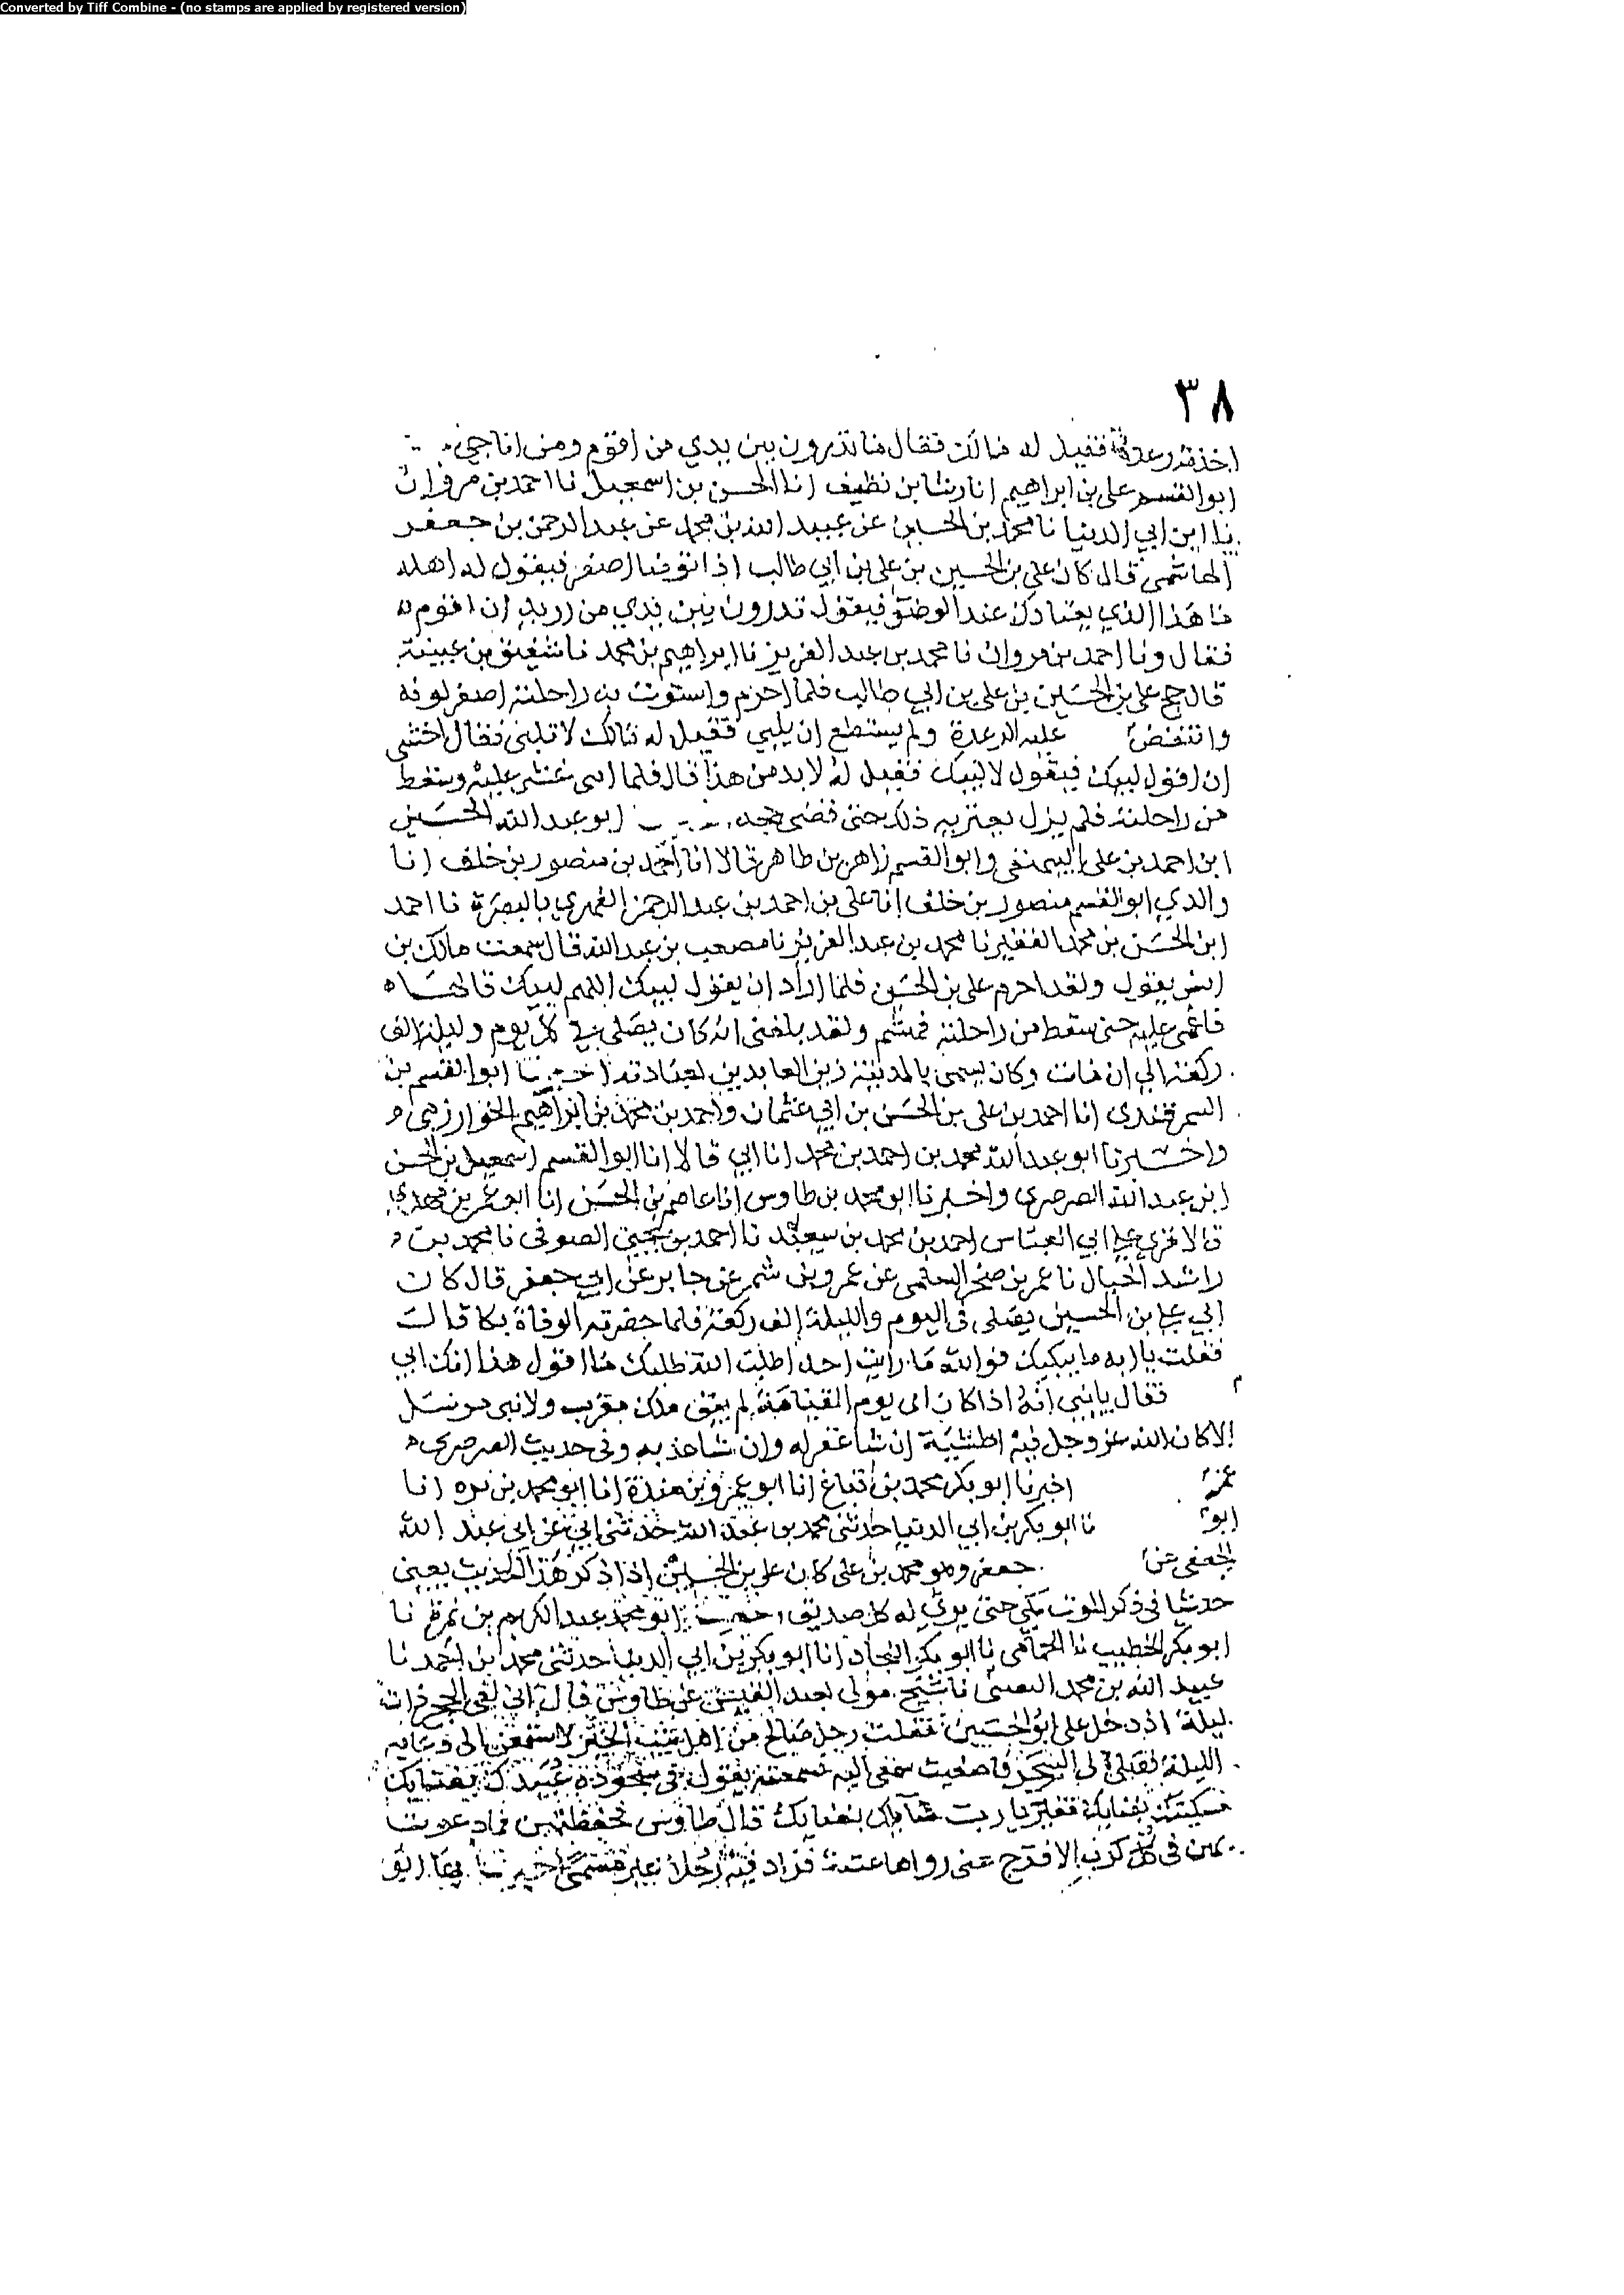 Converted by Tiff Combine - (no stamps are applied by registered version)
٣٨
اخذته رعدة فقيل له مالك فقال ما تدرون بين يدي من اقوم ومن اناجي
ابو القسم علي بن ابراهيم انا رشا بن نظيف انا الحسن بن اسمعيل نا احمد بن مروان
نا ابن ابي الدنيا نا محمد بن الحسين عن عبيد الله بن محمد عن عبد الرحمن بن جعفر
الهاشمي قال كان علي بن الحسين بن علي بن ابي طالب اذا توضا اصفر فيقول له اهله
ما هذا الذي يعتادك عند الوضو فيقول تدرون بين يدي من اريد ان اقوم
فقال ونا احمد بن مروان نا محمد بن عبد العزيز نا ابراهيم بن محمد نا سفين بن عيينة
قال حج علي بن الحسين بن علي بن ابي طالب فلما احرم واستوت به راحلته اصفر لونه
وانتفض عليه الرعدة ولم يستطع ان يلبي فقيل له مالك لا تلبي فقال اخشى
ان اقول لبيك فيقول لا لبيك فقيل له لا بد من هذا قال فلما لبى غشي عليه وسقط
من راحلته فلم يزل يعتريه ذلك حتى قضى حجه ابو عبد الله الحسين
ابن احمد بن علي البيهقي وابو القسم زاهر بن طاهر قالا انا احمد بن منصور بن خلف انا
والدي ابو القسم منصور بن خلف انا علي بن احمد بن عبد الرحمن الفهري بالبصرة نا احمد
ابن الحسن بن محمد الفقيه نا محمد بن عبد العزيز نا مصعب بن عبد الله قال سمعت مالك بن
انس يقول ولقد احرم علي بن الحسين فلما اراد ان يقول لبيك اللهم لبيك قالها
فاغمي عليه حتى سقط من راحلته فهشم ولقد بلغني انه كان يصلي في كل يوم وليلة الف
ركعة الى ان مات وكان يسمى بالمدينة زين العابدين لعبادته اخبرنا ابو القسم بن
السمرقندي انا احمد بن علي بن الحسن بن ابي عثمان واحمد بن محمد بن ابراهيم الخوارزمي
واخبرنا ابو عبد الله محمد بن احمد بن محمد انا ابي قالا انا ابو القسم اسمعيل بن الحسن
ابن عبد الله الصرصري واخبرنا ابو محمد بن طاوس انا عاصم بن الحسن انا ابو عمر بن مهدي
قالا قرئ على ابي العباس احمد بن محمد بن سعيد نا احمد بن يحيى الصوفي نا محمد بن
راشد الحبال نا عمر بن صخر السلمي عن عمرو بن شمر عن جابر عن ابي جعفر قال كان
ابي علي بن الحسين يصلي في اليوم والليلة الف ركعة فلما حضرته الوفاة بكا قالت
فقلت يا ابه ما يبكيك فوالله ما رايت احدا طلب الله طلبك ما اقول هذا انك ابي
فقال يا بني انه اذا كان يوم القيامة لم يبق ملك مقرب ولا نبي مرسل
الا كان الله عز وجل فيه المشية ان شا غفر له وان شا عذبه وفي حديث الصرصري
اخبرنا ابو بكر محمد بن انا ابو عمرو بن مندة انا ابو محمد بن انا
ابو نا ابو بكر بن ابي الدنيا حدثني محمد بن حدثني ابي عن ابي عبد الله
الجعفي عن جعفر وهو محمد بن علي كان علي بن الحسين اذا ذكر هذا الحديث يعني
حديثا في ذكر الموت بكي حتى يرثي له كل صديق ابو محمد عبد الكريم بن حمزة نا
ابو بكر الخطيب نا الحمامي نا ابو بكر النجاد انا ابو بكر بن ابي الدنيا حدثني محمد بن احمد نا
عبيد الله بن محمد التيمي نا شيخ مولى لعبد القيس عن طاوس قال اني لفي الحجر ذات
ليلة اذ دخل علي بن الحسين فقلت رجل صالح من اهل بيت الخير لاستمعن الى دعايه
الليلة فصلى الى السحر فاصغيت سمعي اليه فسمعته يقول في سجوده عبيدك بفنايك
مسكينك بفنايك فقيرك يا رب سايلك بفنايك قال طاوس فحفظتهن فما دعوت
بهن في كل كرب الا فرج عني رواها فزاد فيه رجلا غير مسمى اخبرنا بها ابو